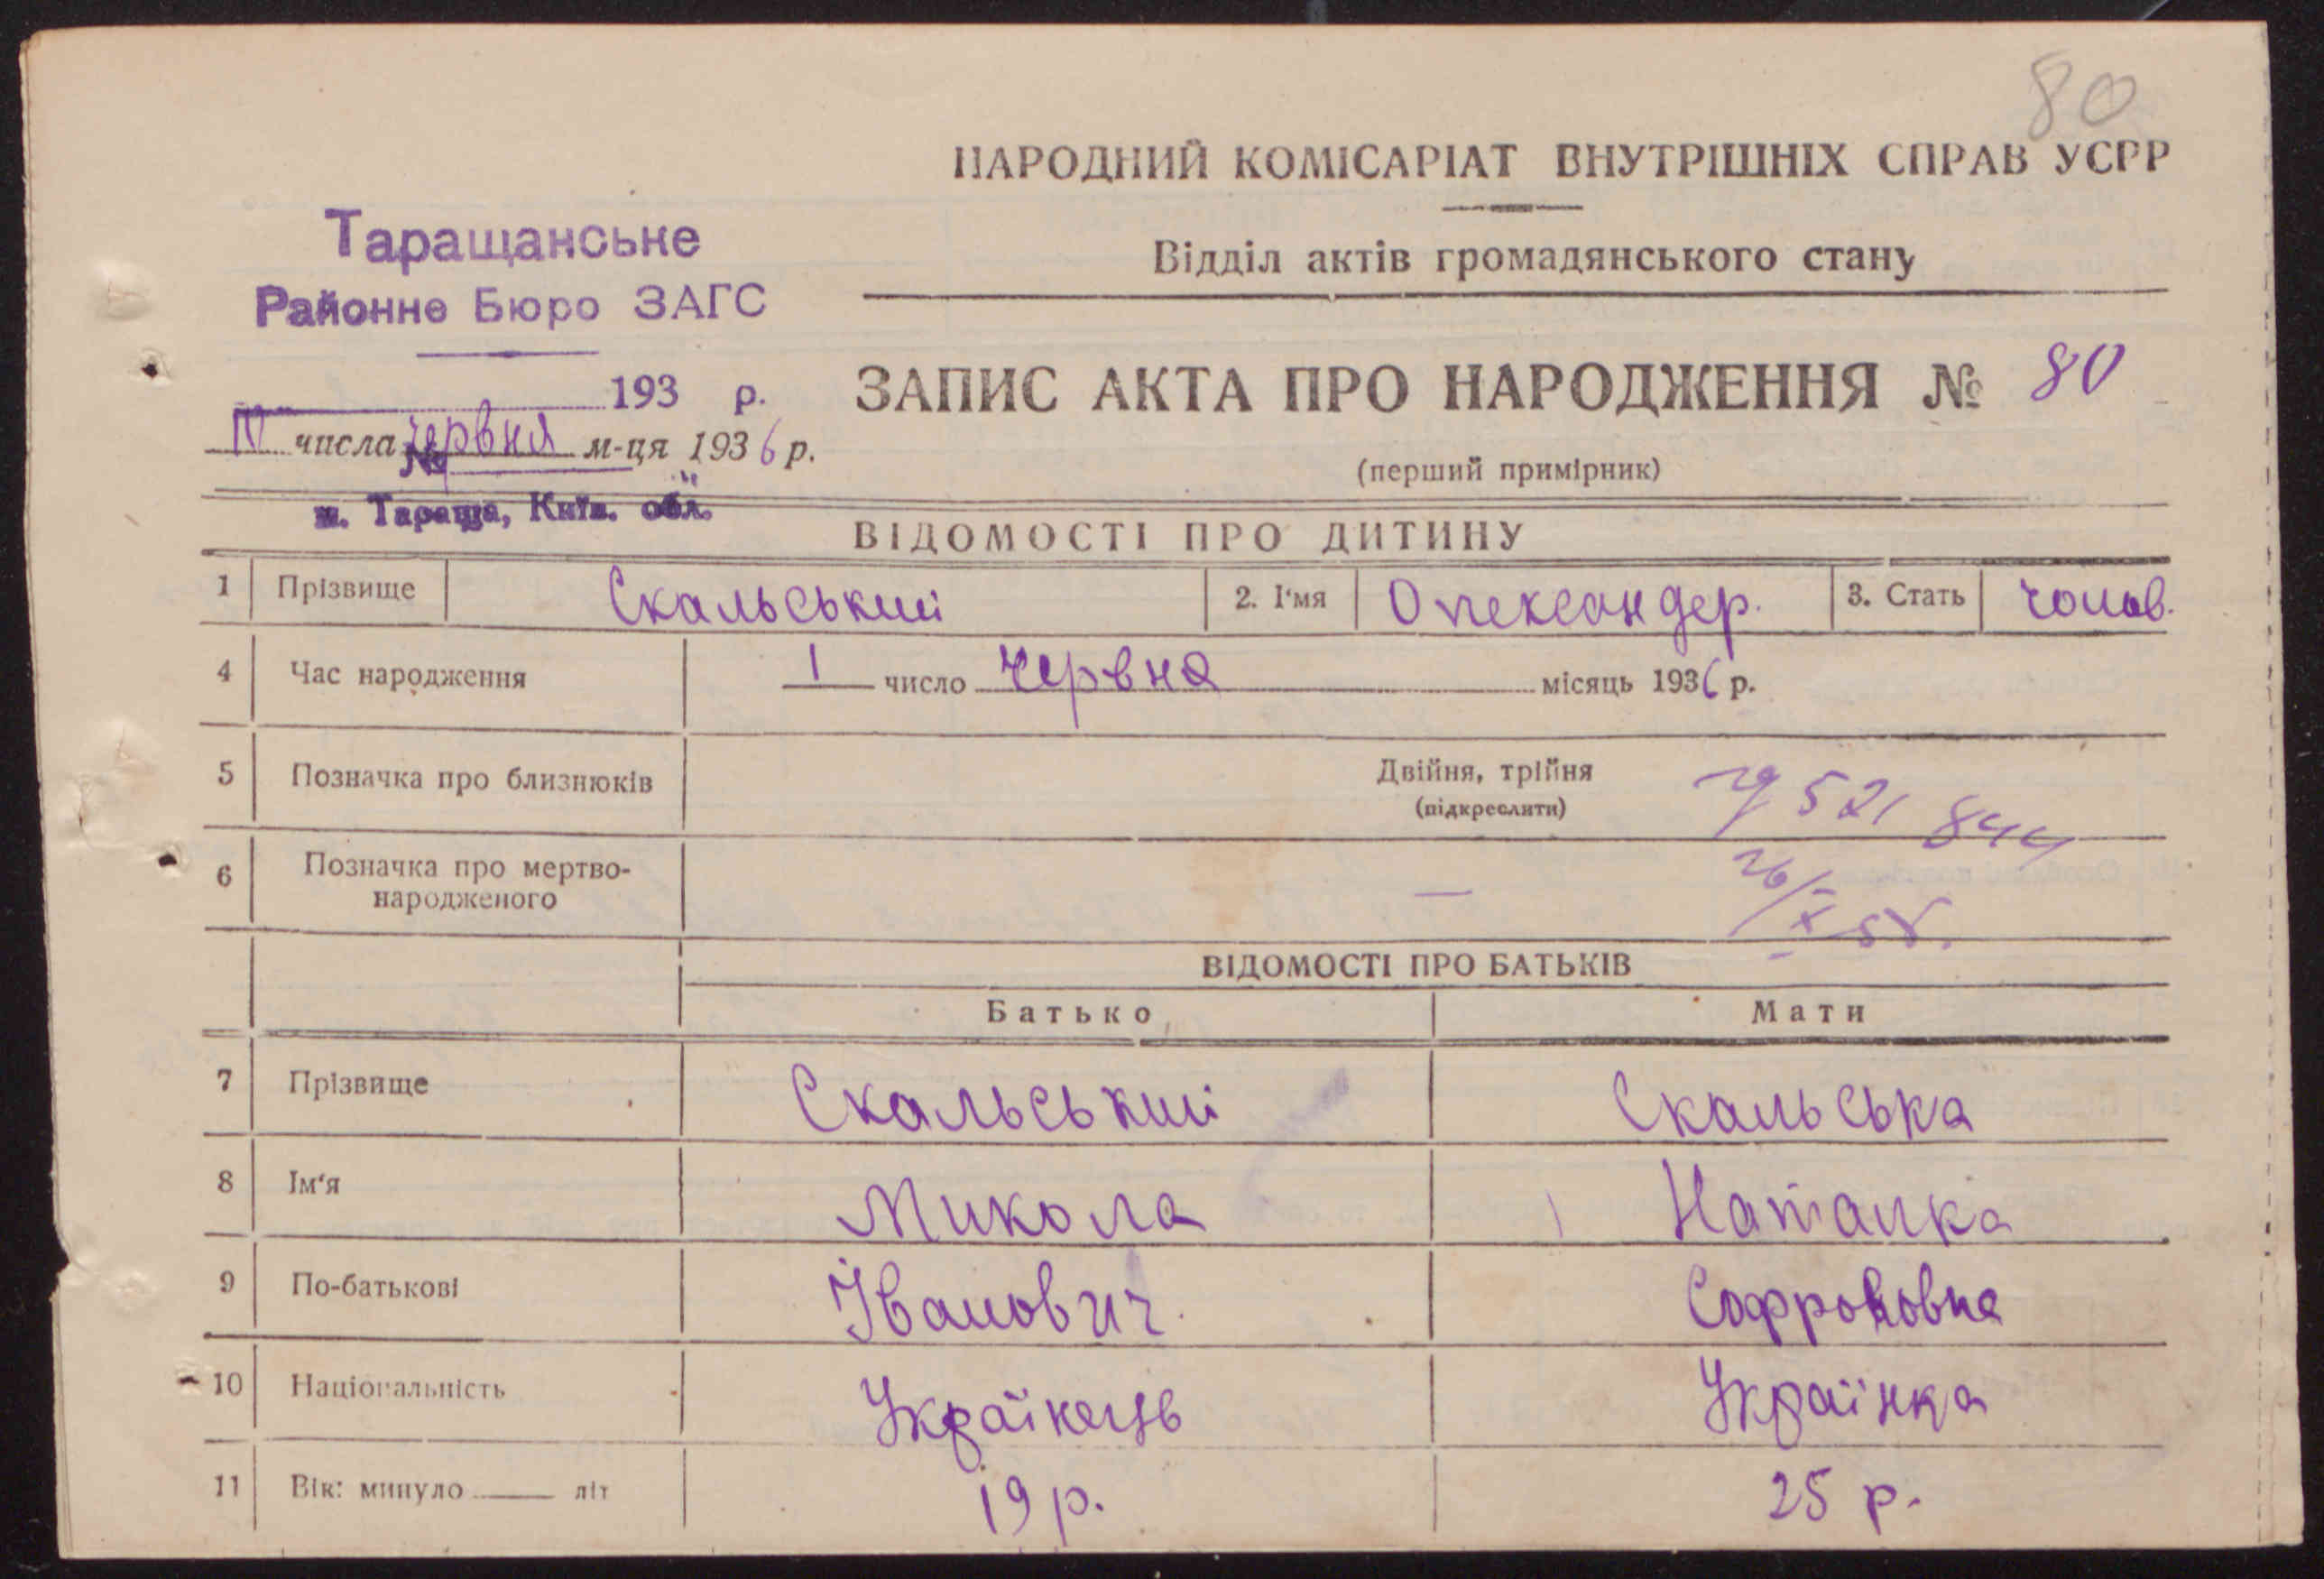 80
НАРОДНИЙ КОМІСАРІАТ ВНУТРІШНІХ СПРАВ УСРР
Відділ актів громадянського стану
Таращанське
Районне Бюро ЗАГС
193 р.
числа червня м-ця 1936 р.
№
м. Тараща, Київ. обл.
ЗАПИС АКТА ПРО НАРОДЖЕННЯ № 80
(перший примірник)
ВІДОМОСТІ ПРО ДИТИНУ
1 Прізвище Скальський 2. І'мя Олександер. 3. Стать чолов.
4 Час народження 1 число червня місяць 1936 р.
5 Позначка про близнюків Двійня, трійня
(підкреслити)
521 844
6 Позначка про мертво-
народженого —
26/X
ВІДОМОСТІ ПРО БАТЬКІВ
Батько Мати
7 Прізвище Скальський Скальська
8 Ім'я Микола Наталка
9 По-батькові Іванович. Софроновна
10 Національність Українець Українка
11 Вік: минуло літ 19 р. 25 р.